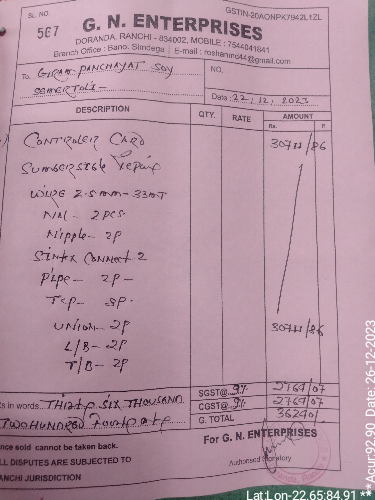 GSTIN-20AONPK7942L1ZL
SL. NO.
567
G. N. ENTERPRISES
DORANDA, RANCHI - 834002, MOBILE : 7544041841
Branch Office : Bano, Simdega E-mail : roshanno44@gmail.com
To, GIRAM PANCHAYAT SOY
SEMERTOLI-
NO.
Date : 22, 12, 2023
DESCRIPTION QTY. RATE AMOUNT
Rs. P.
CONTROLER CARD 30744/86
SUMBERSIBLE repair
WIRE 2.5mm- 33MT
NAL- 2PCS
Nipple- 2P
SINTEX CONNECT 2
PIPE- 2P-
UNION- 2P 30744/86
L/B- 2P
T/B- 2P
SGST@ 9% 2767/07
CGST@ 9% 2767/07
G. TOTAL 36240/
in words THIRTY SIX THOUSAND
TWO HUNDRED
For G. N. ENTERPRISES
once sold cannot be taken back.
ALL DISPUTES ARE SUBJECTED TO
RANCHI JURISDICTION
Authorised Signatory
Lat:Lon-22.65:84.91 ** Acur-92.90 Date, 26-12-2023